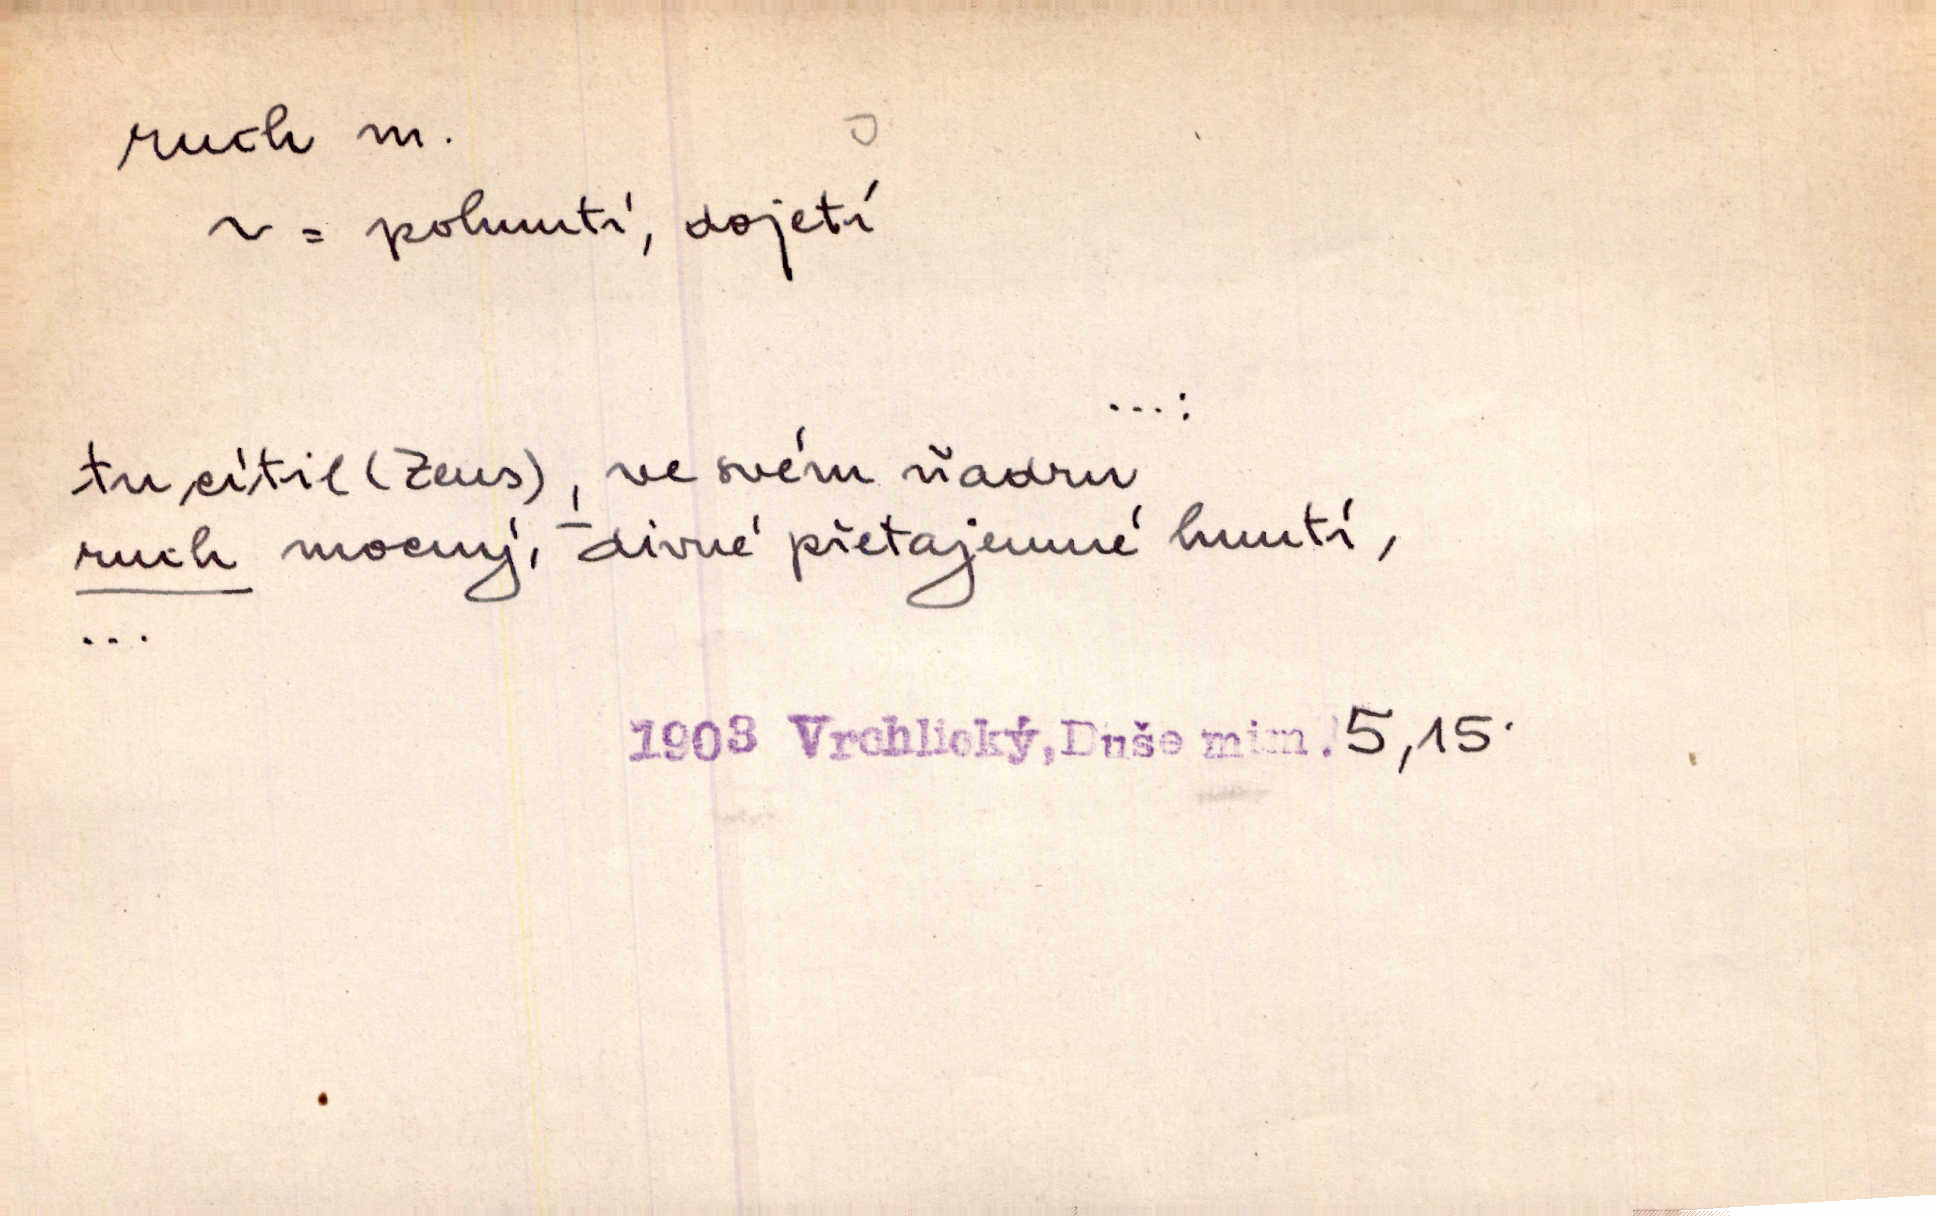 ruch m.
~ = pohnutí, dojetí
...:
tu cítil (Zeus), ve svém ňadru
ruch mocný, divné přetajemné hnutí,
...
1903 Vrchlický, Duše mim. 5,15.